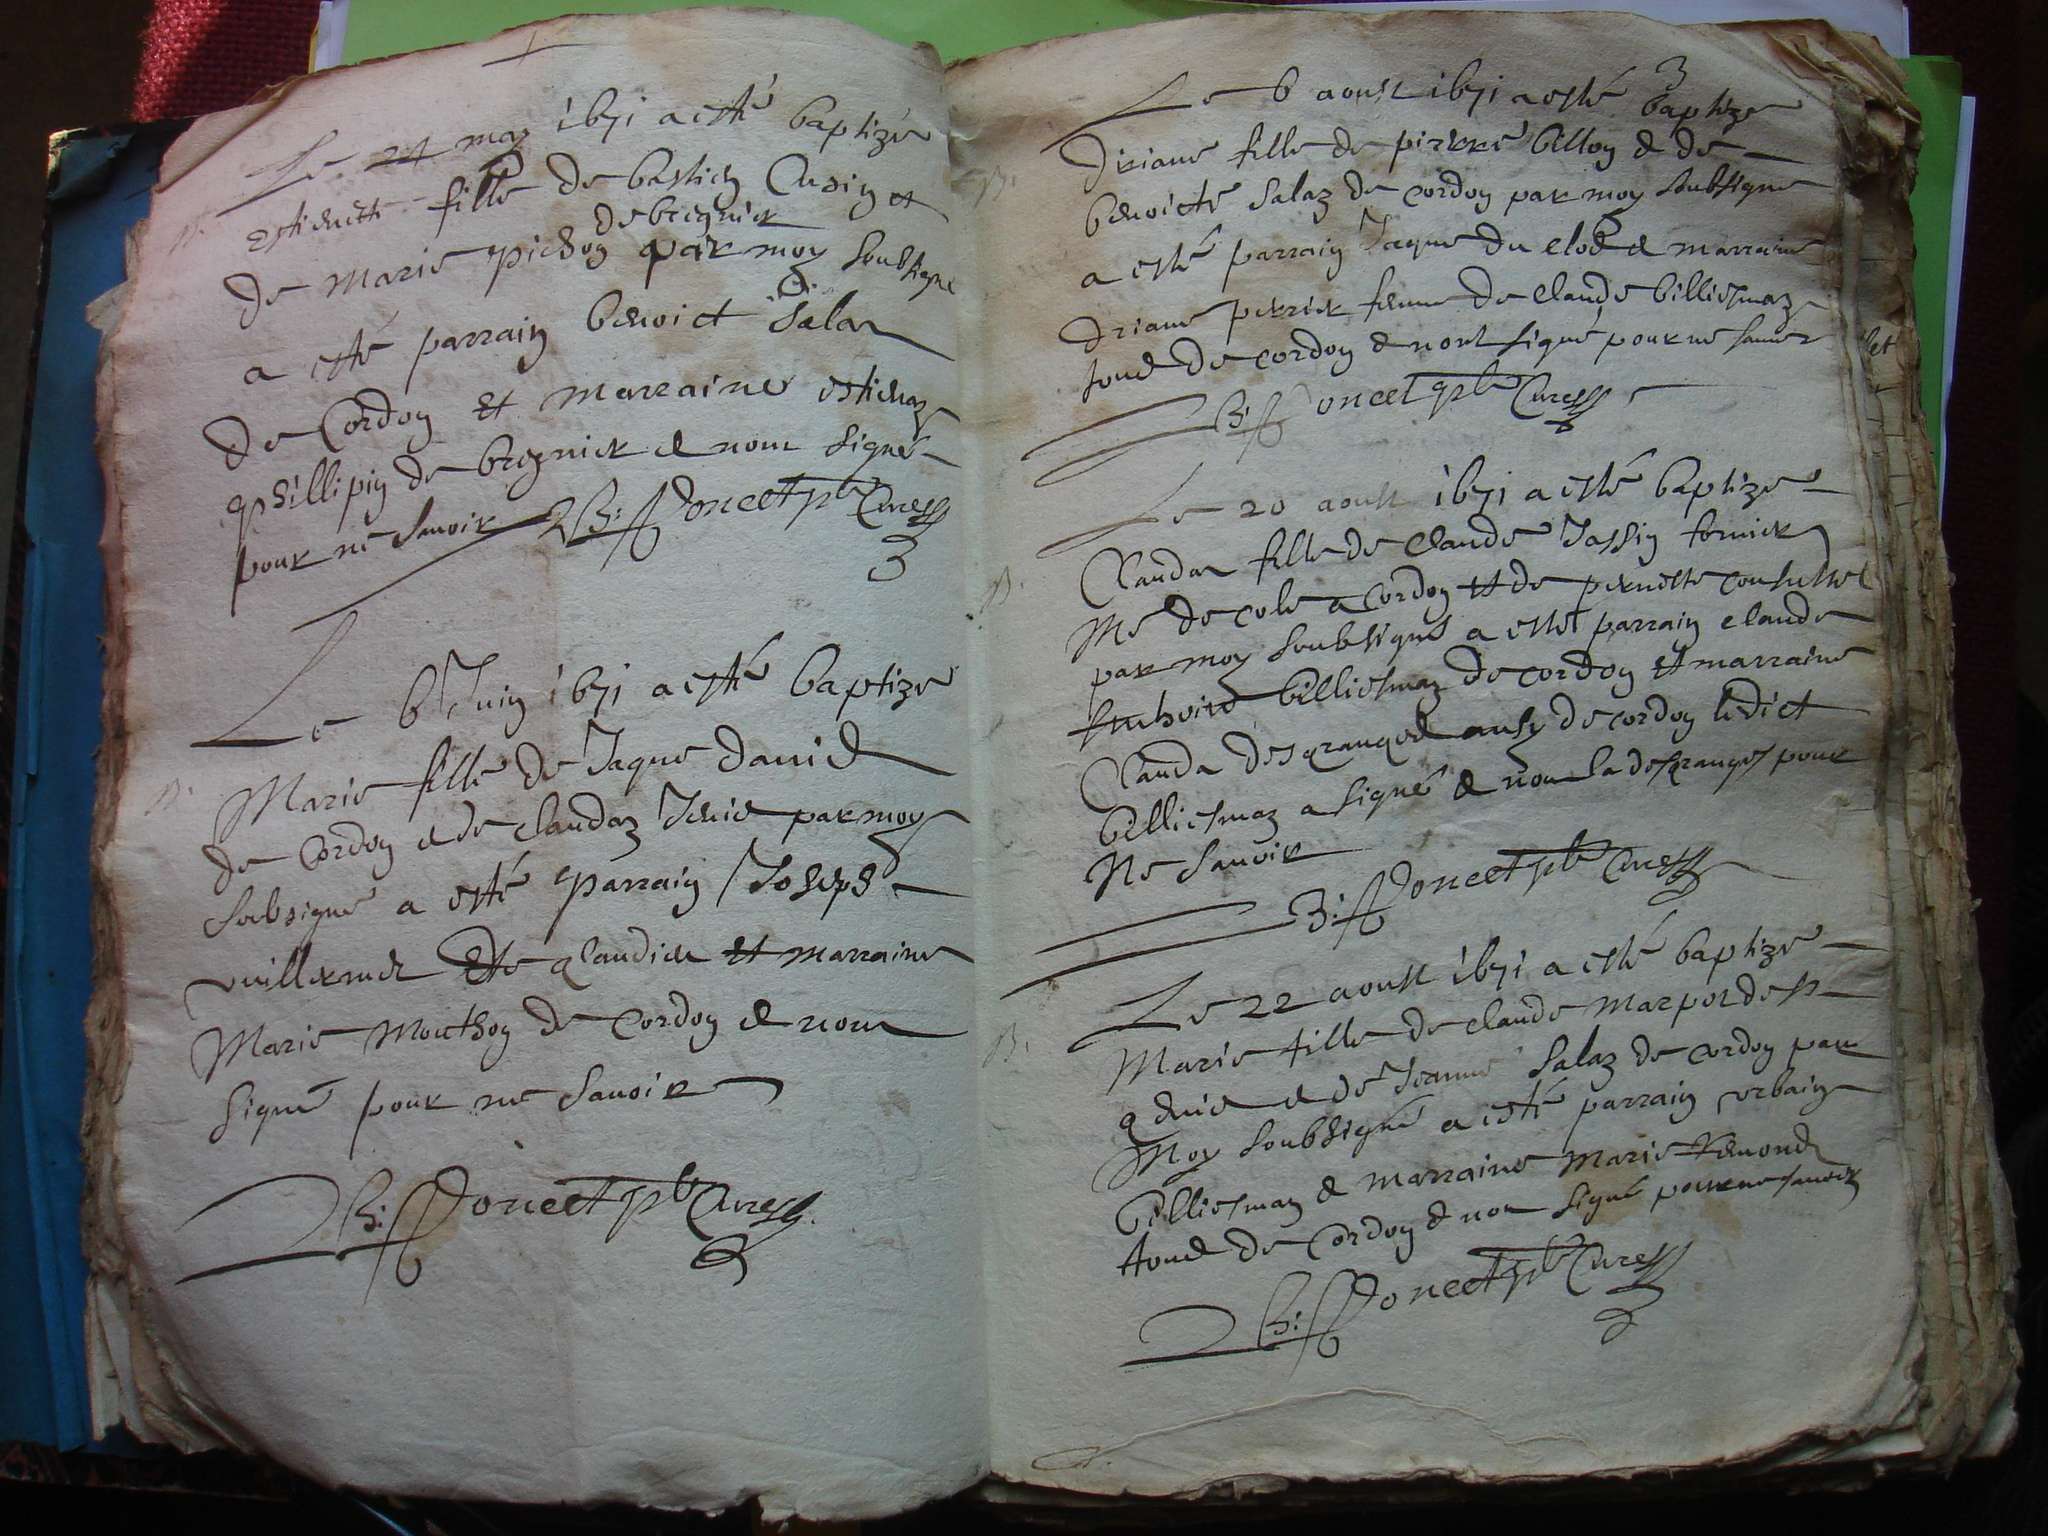 Le 24 may 1671 a esté baptizée
B. Estienette fille de bastien Cusin et
de bregnier
de Marie pichon par moy soubsigné
a esté parrain benoict Sala
de Cordon et marraine estienaz
philliPin de bregnier & nont signé
pour ne scavoir Bi: Poncet pbr Curé
Le 6 Juin 1671 a esté baptize
B. Marie fille de Jaque david
de Cordon & de claudaz par moy
soubsigné a esté parrain Joseph
vuillermet et marraine
Marie Mouthon de Cordon & nont
signé pour ne scavoir
Bi: Poncet pbr Curé
3
Le 6 aoust 1671 a esté baptize
B. driane fille de pierre billon & de
benoicte Salaz de cordon par moy soubsigne
a esté parrain Jaque du & marraine
driane perrier femme de claude billiemaz
tous de cordon & nont signé pour ne scavoir
Bi: Poncet pbr Curé
Le 20 aoust 1671 a esté baptize
B. Clauda fille de claude Jassin fornier
Me de cole a Cordon et de pernette
par moy soubsigné a esté parrain claude
Anthoine billiemaz de cordon et marraine
Clauda desgranges ausy de cordon ledict
billiemaz a signé & non la desgranges pour
Ne scavoir
Bi: Poncet pbr Curé
Le 22 aoust 1671 a esté baptize
B. Marie fille de claude Marpot des
& de Jeanne Salaz de cordon par
Moy soubsigné a esté parrain urbain
billiemaz & marraine Marie
tous de Cordon & non signé pour ne scavoir
Bi: Poncet pbr Curé